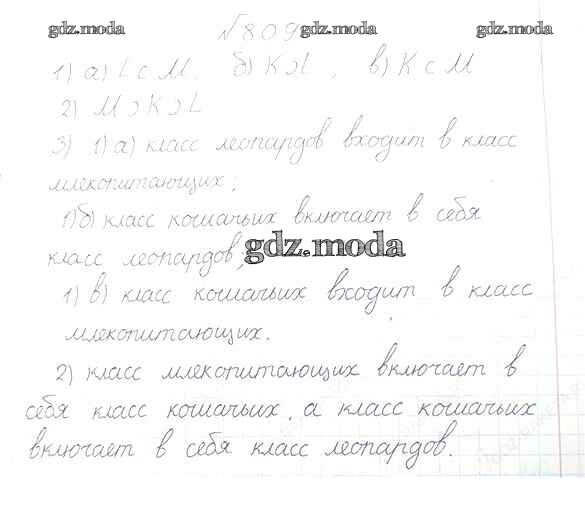 gdz.moda №809 gdz.moda gdz.moda
1) а) L ⊂ M. б) K ⊃ L. в) K ⊂ M
2) M ⊃ K ⊃ L
3) 1) а) класс леопардов входит в класс
млекопитающих;
1) б) класс кошачьих включает в себя
класс леопардов;
gdz.moda
1) в) класс кошачьих входит в класс
млекопитающих.
2) класс млекопитающих включает в
себя класс кошачьих, а класс кошачьих
включает в себя класс леопардов.